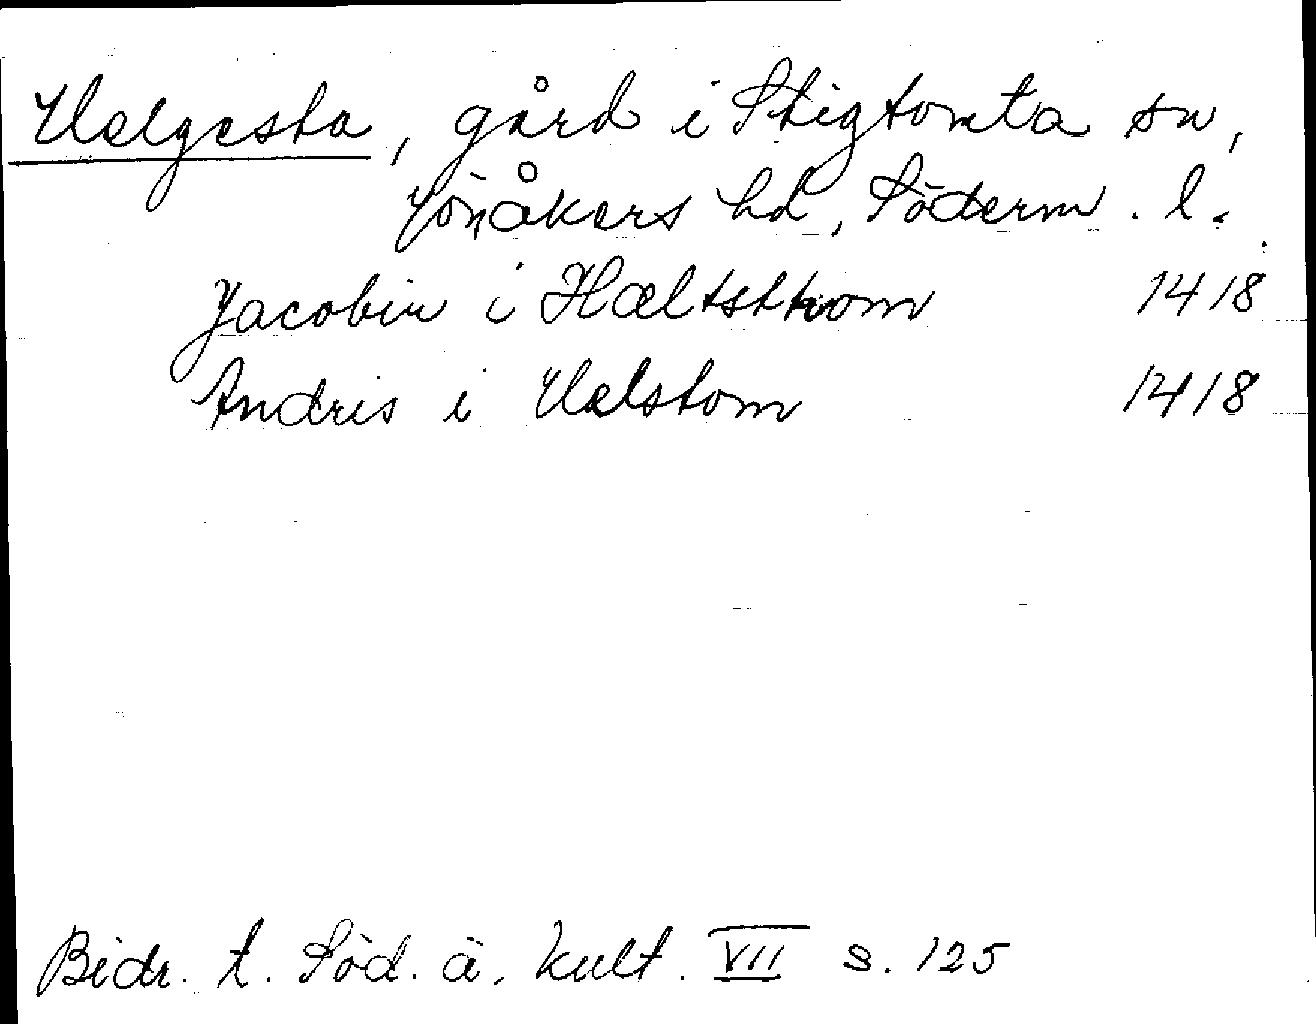 Helgesta, gård i Stigtomta sn,
Jönåkers hd, Söderm. l.
Jacobin i Hæltsthom 1418
Andris i Hælstom 1418
Bidr. t. Söd. ä. kult. VII s. 125